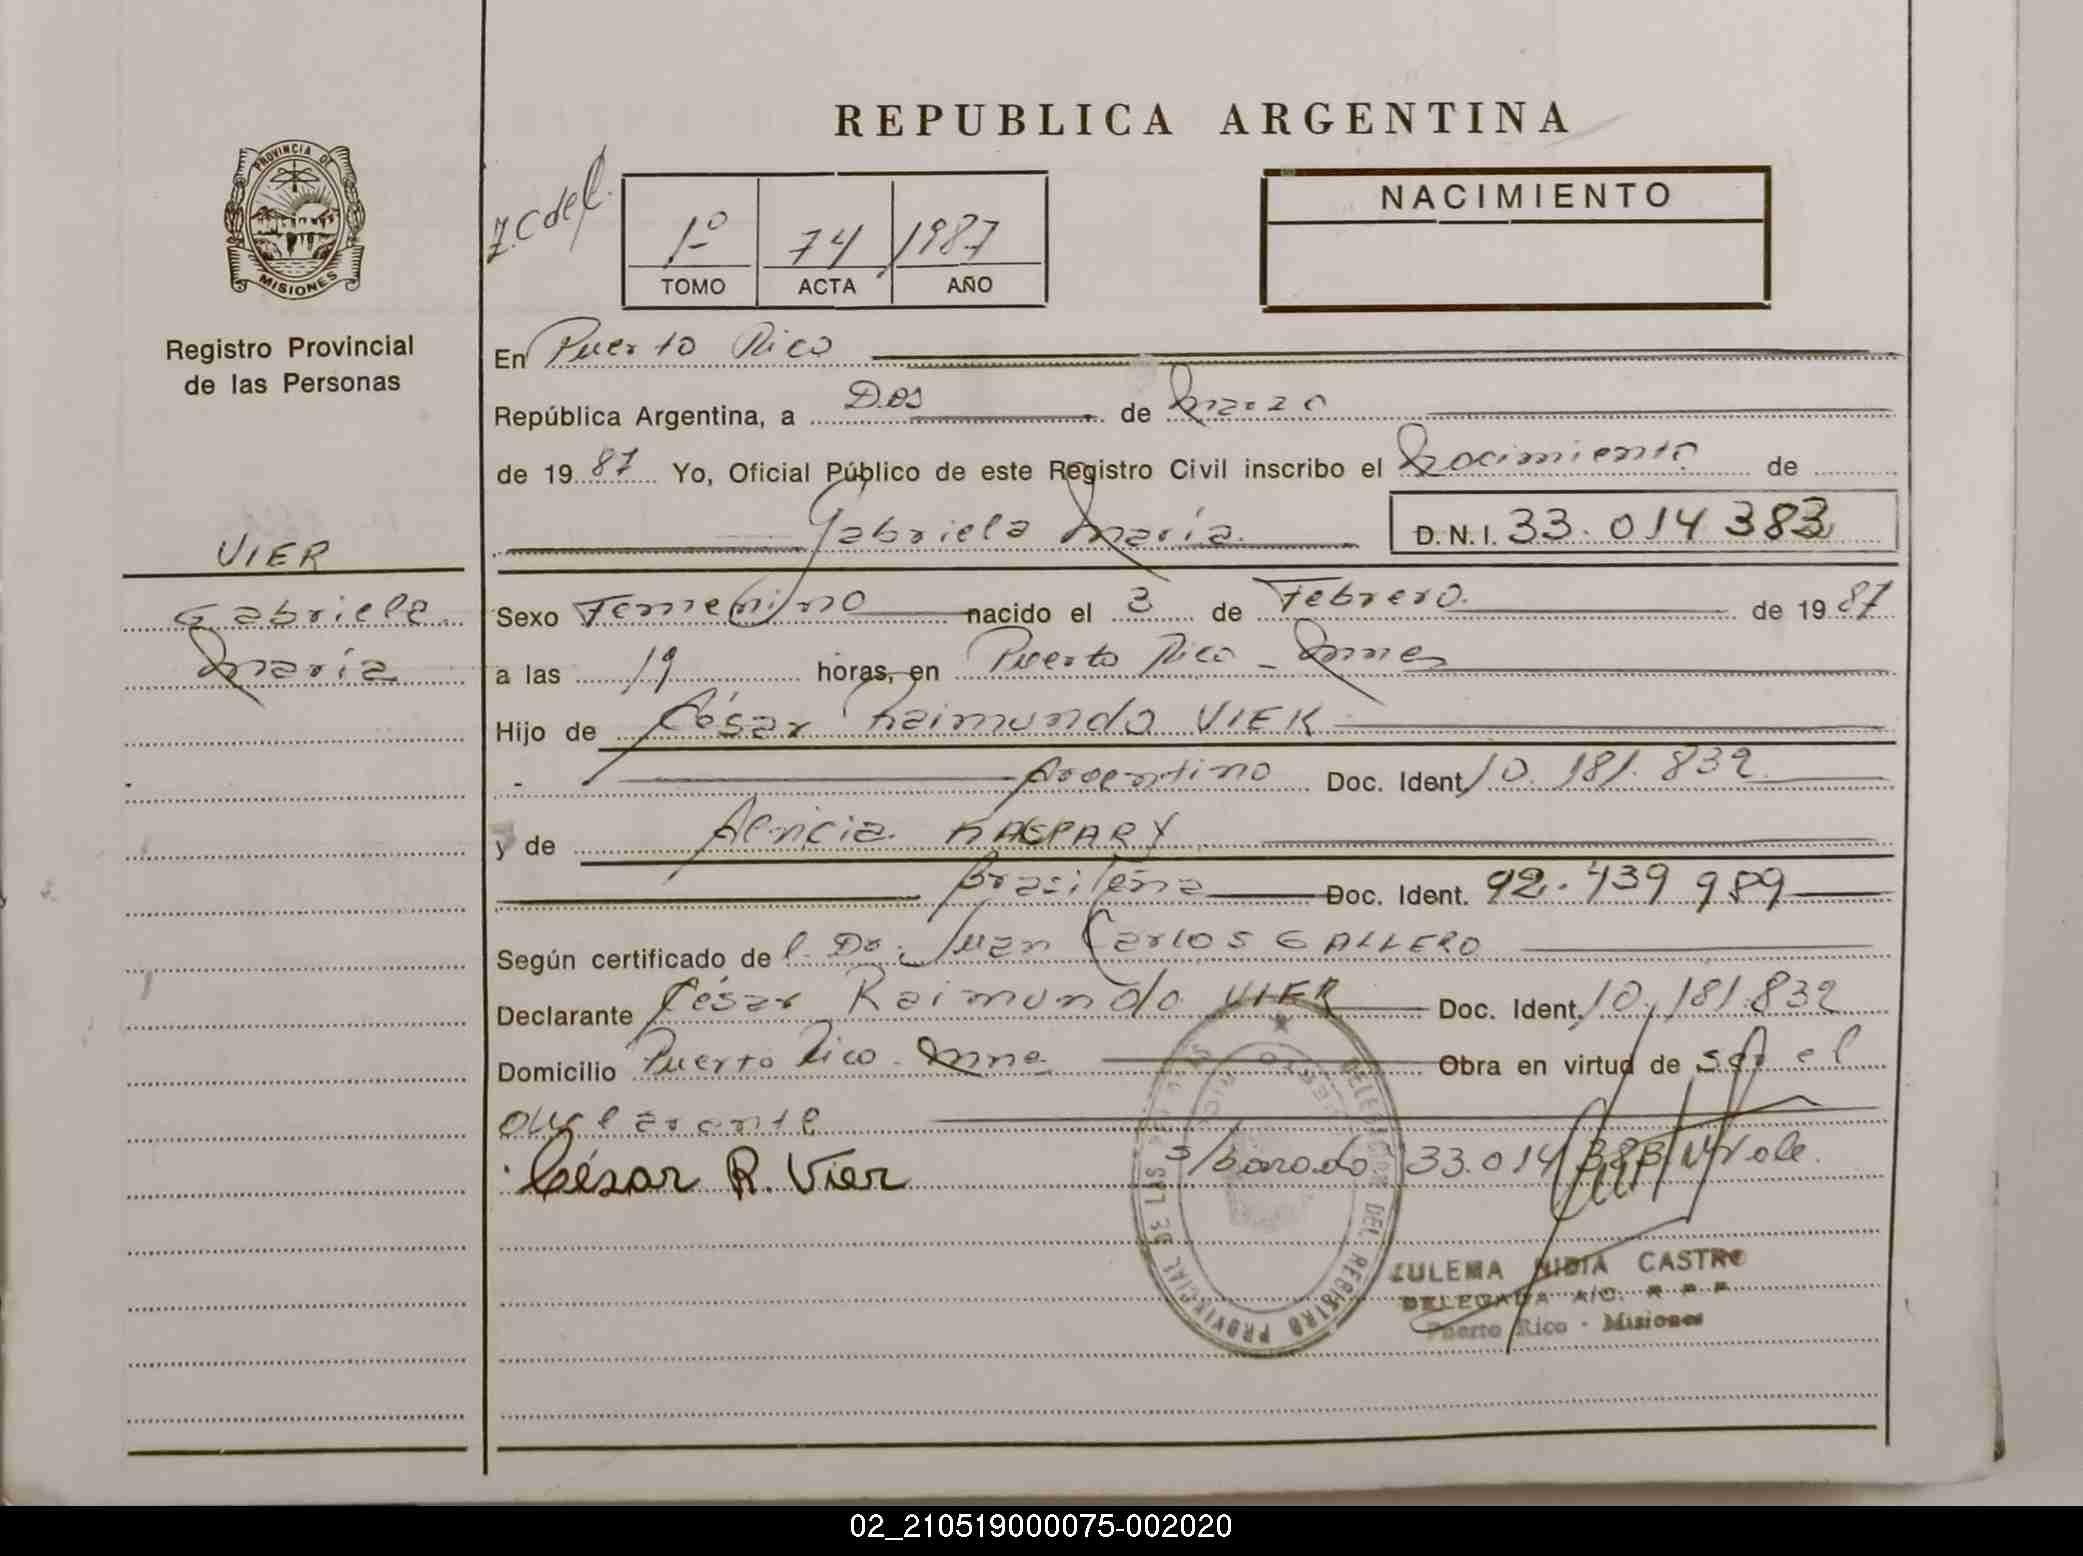 REPUBLICA ARGENTINA
PROVINCIA DE
MISIONES
Registro Provincial
de las Personas
VIER
Gabriela
María
1º 74 1987
TOMO ACTA AÑO
NACIMIENTO
En Puerto Rico
República Argentina, a Dos de Marzo
de 1987 Yo, Oficial Público de este Registro Civil inscribo el Nacimiento de
Gabriela María D.N.I. 33.014 383
Sexo Femenino nacido el 3 de Febrero de 1987
a las 19 horas, en Puerto Rico - Mnes
Hijo de César Raimundo VIER
Argentino Doc. Ident. 10.181.832
y de KASPARY
Brasileña Doc. Ident. 92.439 989
Según certificado del Dr. Juan Carlos GALLERO
Declarante César Raimundo VIER Doc. Ident. 10.181.832
Domicilio Puerto Rico - Mne Obra en virtud de ser el
declarante
César R. Vier s/borado 33.014 383 Vale.
DELEGACION DEL REGISTRO PROVINCIAL DE LAS
PUERTO RICO
ZULEMA NIDIA CASTRO
DELEGADA A/C. R P P
Puerto Rico - Misiones
02_210519000075-002020